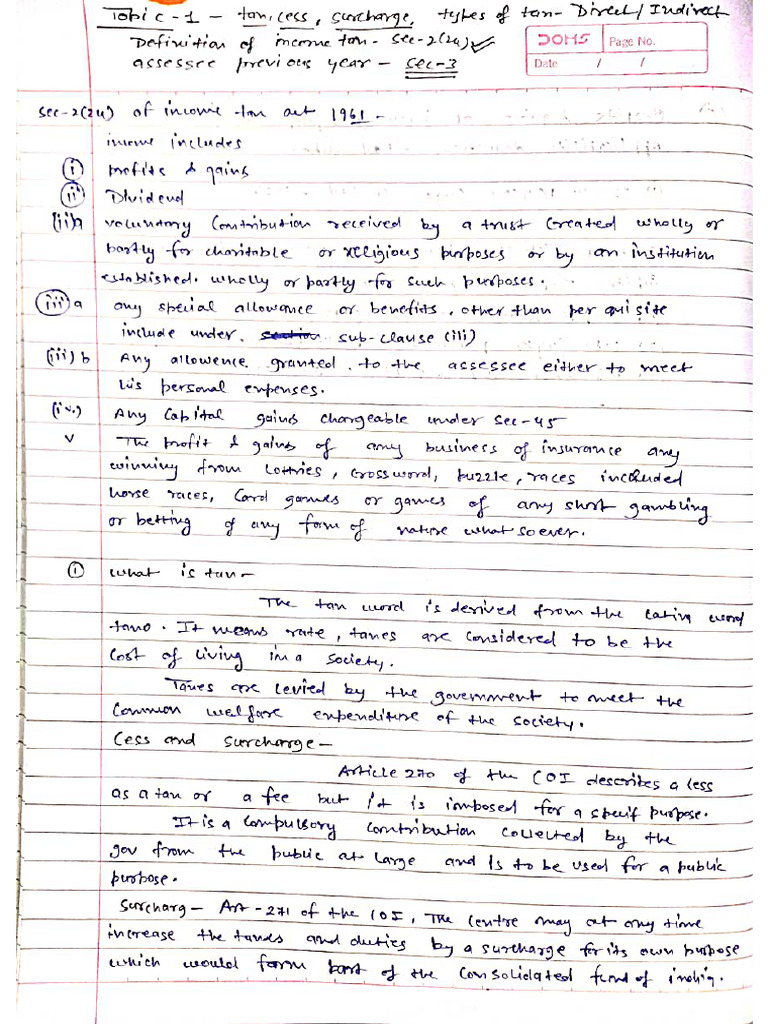 Topic-1 - tax, cess, surcharge, types of tax- Direct/Indirect
Definition of income tax- Sec-2(24)
assessee previous year - Sec-3
DOMS Page No.
Date / /
Sec-2(24) of income tax act 1961-
income includes
(i) profits & gains
(ii) Dividend
(ii)a voluntary contribution received by a trust created wholly or
partly for charitable or religious purposes or by an institution
established. wholly or partly for such purposes.
(iii)a any special allowance or benefits, other than per quisite
include under. section sub-clause (iii)
(iii)b Any allowence granted to the assessee either to meet
his personal expenses.
(iv.) Any Capital gains chargeable under Sec-45
v The profit & gains of any business of insurance any
winning from Lottries, Crossword, puzzle, races included
horse races, Card games or games of any short gambling
or betting of any form of nature what so ever.
(1) what is tax-
The tax word is derived from the Latin word
taxo. It means rate, taxes are considered to be the
Cost of living in a society.
Taxes are levied by the government to meet the
Common welfare expenditure of the society.
Cess and Surcharge-
Article 270 of the COI describes a Cess
as a tax or a fee but it is imposed for a specif purpose.
It is a Compulsory Contribution collected by the
gov from the public at large and is to be used for a public
purpose.
Surcharg- Art-271 of the COI, The Centre may at any time
increase the and duties by a surcharge for its own purpose
which would form part of the Consolidated fund of india.